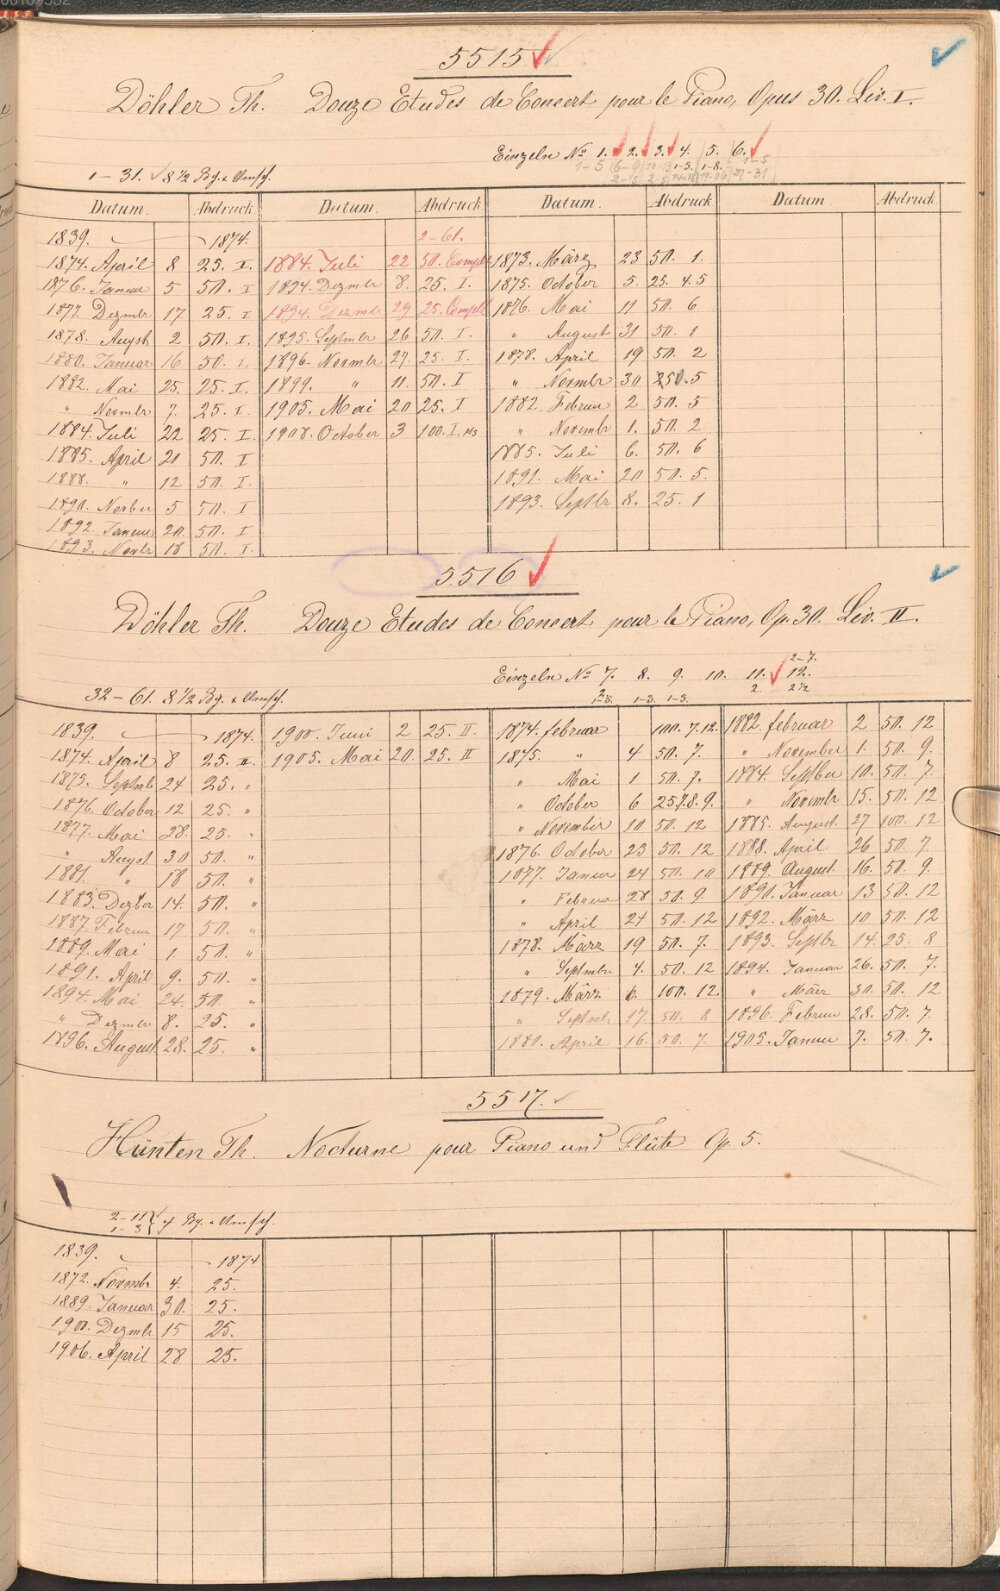 5515
Döhler Th. Douze Etudes de Concert pour le Piano, Opus 30. Liv. I.
Einzeln No 1. 2. 3. 4. 5. 6.
1-31. 8 1/2 Bg. + Umsch.
Datum. Abdruck Datum. Abdruck Datum. Abdruck Datum Abdruck
1839. 1874. 2-61.
1874. April 8 25. I. 1884. Juli 22 50. Complt 1873. März 23 50. 1.
1876. Januar 5 50. I 1894. Dezmbr 8. 25. I. 1875. October 5. 25. 4.5
1877. Dezmbr 17 25. I 1894. Dezmbr 29 25. Complt 1876. Mai 11 50. 6
1878. Augst 2 50. I. 1895. Septmbr 26 50. I. " August 31 50. 1
1880. Januar 16 50. I. 1896. Novmbr 27. 25. I. 1878. April 19 50. 2
1882. Mai 25. 25. I. 1899. " 11. 50. I " Novmbr 30 50. 5
" Novmbr 7. 25. I. 1905. Mai 20 25. I 1882. Februar 2 50. 5
1884. Juli 22 25. I. 1908. October 3 100. I. " Novembr 1. 50. 2
1885. April 21 50. I 1885. Juli 6. 50. 6
1888. " 12 50. I. 1891. Mai 20 50. 5.
1890. Novber 5 50. I 1893. Septbr 8. 25. 1
1892. Januar 20. 50. I.
1893. Novbr 18 50. I.
5516
Döhler Th. Douze Etudes de Concert pour le Piano, Op. 30. Liv. II.
2-7.
Einzeln No 7. 8. 9. 10. 11. 12.
32-61. 8 1/2 Bg. + Umsch. 1-3. 1-3. 2. 2 1/2
1839. 1874. 1900. Juni 2 25. II. 1874. februar 100. 7.12. 1882. februar 2 50. 12
1874. April 8 25. II. 1905. Mai 20. 25. II 1875. " 4 50. 7. " November 1. 50. 9.
1875. Septmbr 24 25. " " Mai 1 50. 7. 1884. Septber 10. 50. 7.
1876. October 12 25. " " October 6 25. 7.8.9. " Novembr 15. 50. 12
1877. Mai 28. 25. " " November 10 50. 12 1885. August. 27 100. 12
" Augst 30 50. " 1876. October 23 50. 12 1888. April 26 50. 7
1881. " 18 50. " 1877. Januar 24 50. 10 1889. August. 16. 50. 9.
1883. Dezber 14. 50. " " Februar 28 50. 9 1890. Januar 13 50. 12
1887. Februar 17 50. " " April 24 50. 12 1892. März 10 50. 12
1889. Mai 1 50. " 1878. März 19 50. 7. 1893. Septbr 14. 25. 8
1891. April 9. 50. " " Septmbr 4. 50. 12 1894. Januar 26. 50. 7.
1894. Mai 24. 50. " 1879. März 6. 100. 12. " März 30. 50. 12
" Dezmbr 8. 25. " " Septmbr 17 50. 8 1896. Februar 28. 50. 7.
1896. August 28. 25. " 1880. April 16. 50. 7. 1905. Januar 7. 50. 7.
5517.
Hünten Th. Nocturne pour Piano und Flüte Op. 5.
2-11
1-3 4 Bg. + Umsch.
1839. 1874
1872. Novmbr 4. 25.
1889. Januar 30. 25.
1900. Dezmbr 15 25.
1906. April 28 25.